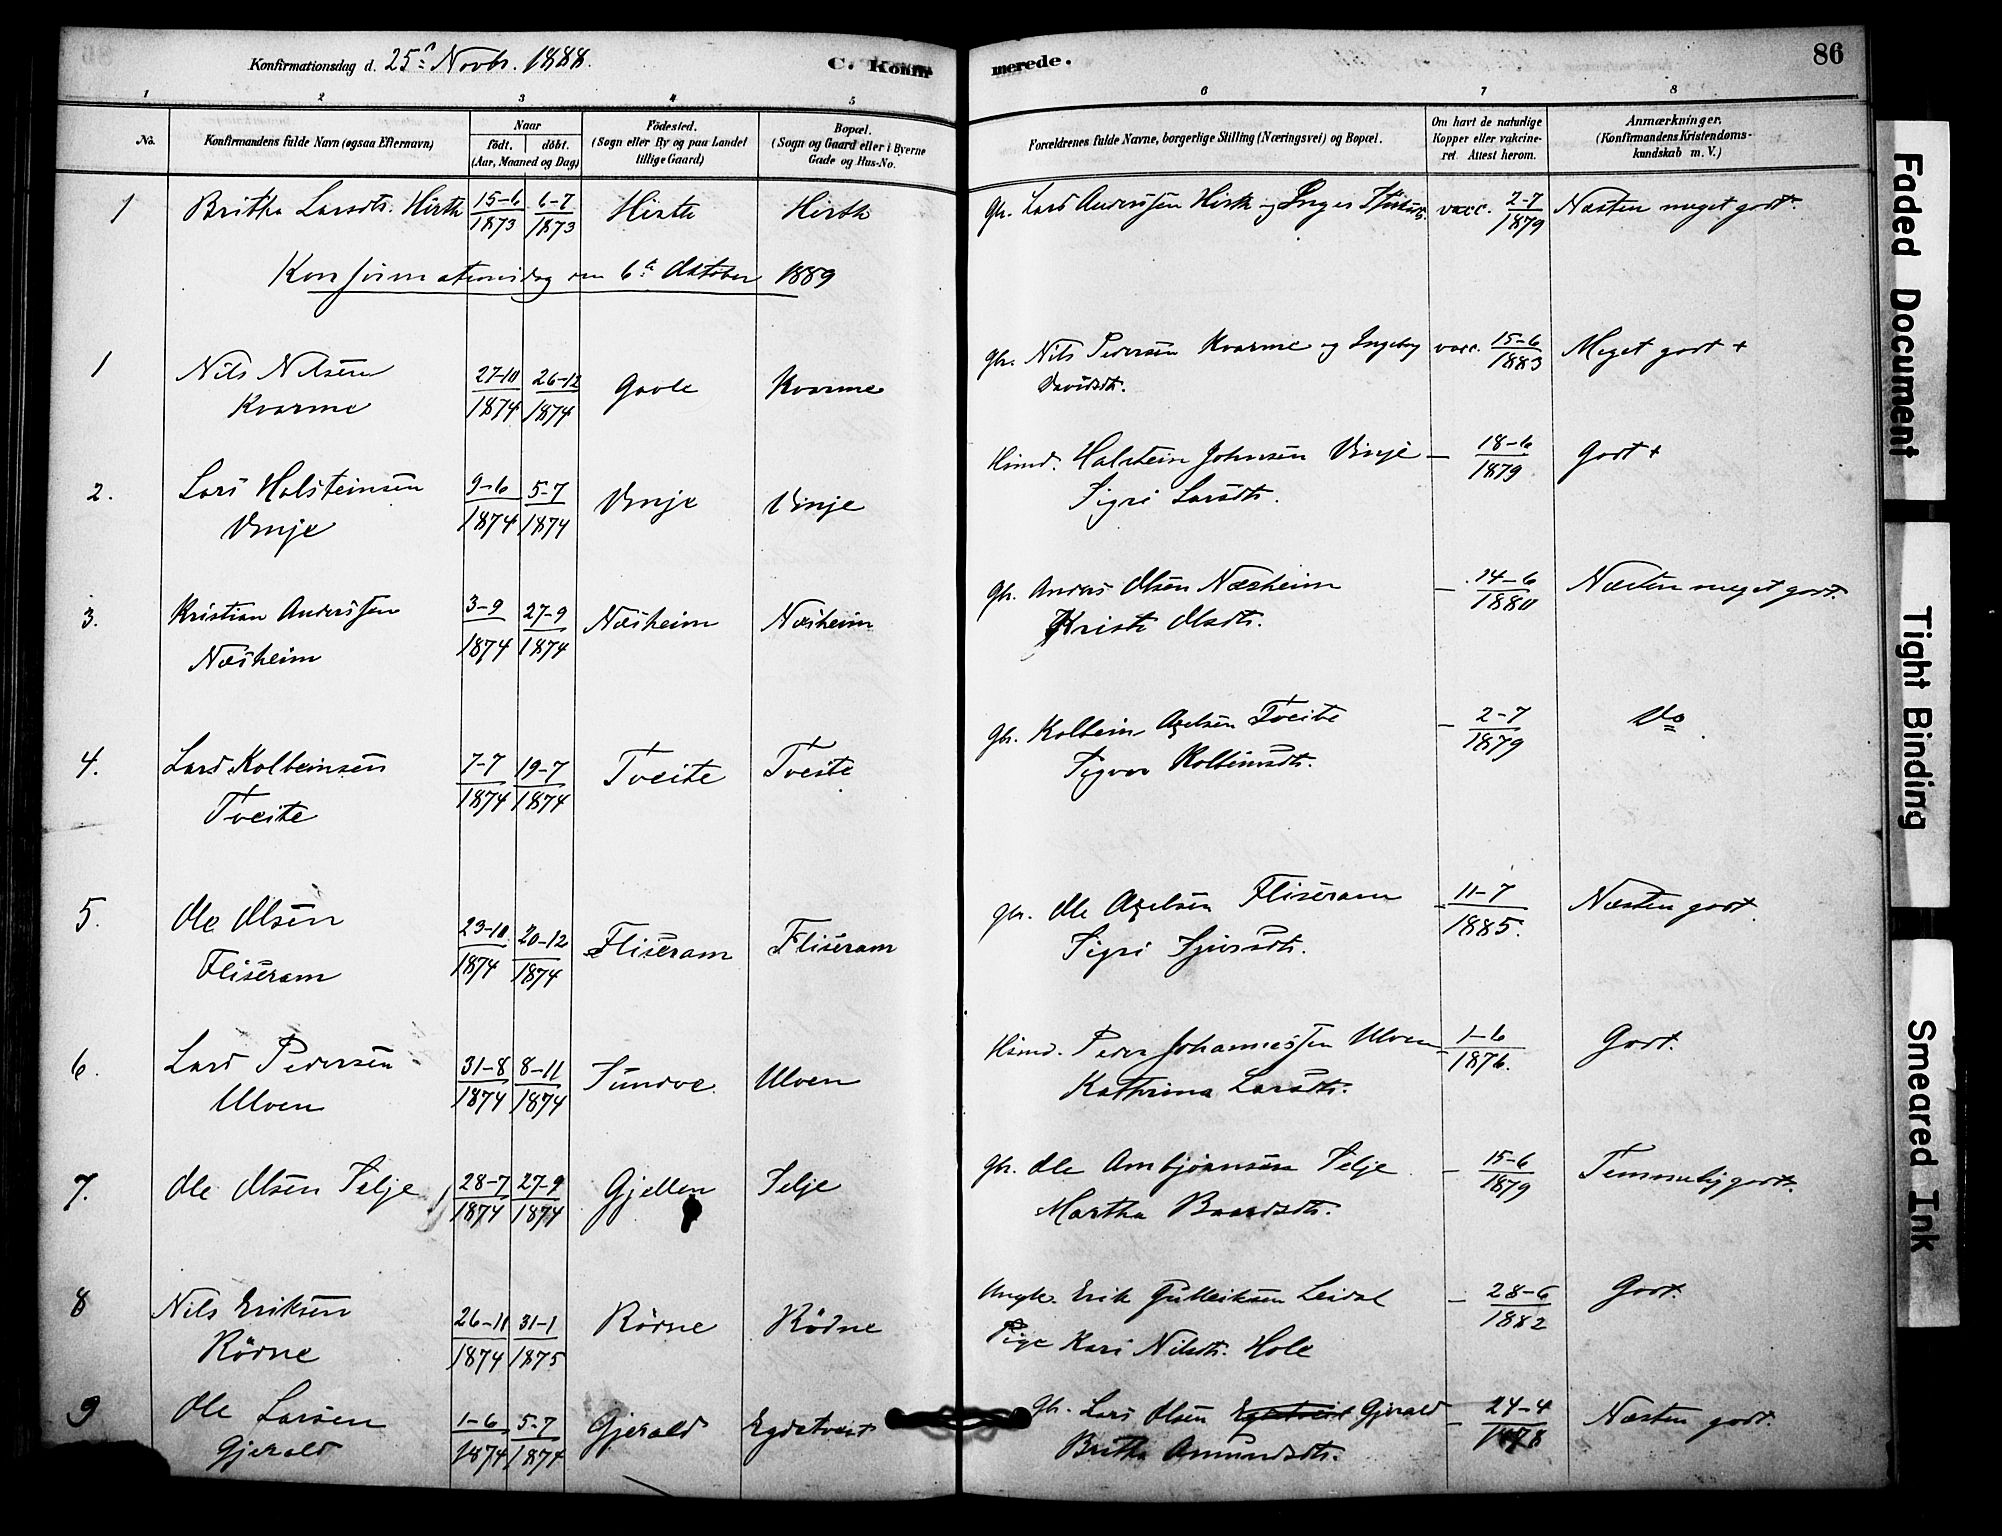 Konfirmationsdag d. 25de Novbr. 1888.
C. Konfirmerede.
86
1 2 3 4 5 6 7 8
No.
Konfirmandens fulde Navn (ogsaa Efternavn)
Naar
födt. döbt.
(Aar, Maaned og Dag)
Födested.
(Sogn eller By og paa Landet
tillige Gaard)
Bopæl.
(Sogn og Gaard eller i Byerne
Gade og Hus-No.
Forældrenes fulde Navne, borgerlige Stilling (Næringsvei) og Bopæl.
Om havt de naturlige
Kopper eller vakcine-
ret. Attest herom.
Anmærkninger.
(Konfirmandens Kristendoms-
kundskab m. V.)
1 Britha Larsdtr. Hirth 15-6 1873 6-7 1873 Hirth Hirth Gbr. Lars Anderssen Hirth og Inger vacc. 2-7 1879 Næsten meget godt.
Konfirmationsdag den 6te Oktober 1889
1 Nils Nilsen 27-10 1874 26-12 1874 Gavle Kvarme Gbr. Nils Pedersen Kvarme og Ingebrg vacc. 15-6 1883 Meget godt +
Kvarme Davidsdtr.
2. Lars Halsteinsen 9-6 1874 5-7 1874 Vinje Vinje Husmd. Halstein Johnsen Vinje - 18-6 1879 Godt +
Vinje Sigri Larsdtr.
3. Kristian Anderssen 3-9 1874 27-9 1874 Næsheim Næsheim Gbr. Anders Olsen Næsheim - 14-6 1880 Næsten meget godt.
Næsheim Kristi Olsdtr.
4. Lars Kolbeinsen 7-7 1874 19-7 1874 Tveite Tveite Gbr. Kolbein Axelsen Tveite - 2-7 1879 Do
Tveite Sigvor Kolbeinsdtr.
5. Ole Olsen 23-10 1874 20-12 1874 Fliseram Fliseram Gbr. Ole Axelsen Fliseram - 11-7 1885. Næsten godt.
Fliseram Sigri Sjursdtr.
6. Lars Pedersen 31-8 1874 8-11 1874 Sundve Ulven Husmd. Peder Johannessen Ulven - 1-6 1876. Godt.
Ulven Kathrina Larsdtr.
7. Ole Olsen Selje 28-7 1874 27-9 1874 Gjellen Selje Gbr. Ole Arnbjörnsen Selje - 15-6 1879 Temmelig godt.
Martha Baardsdtr.
8 Nils Eriksen 26-11 1874 31-1 1875 Rödne Rödne Ungk. Erik Gulleiksen Leidal - 28-6 1882 Godt.
Rödne Pige Kari Nilsdtr. Hole
9 Ole Larsen 1-6 1874 5-7 1874 Gjerald Egdetveit Gbr. Lars Olsen Egdetveit Gjerald - 24-4 1878 Næsten godt.
Gjerald Britha Amundsdtr.
Faded Document
Tight Binding
Smeared Ink